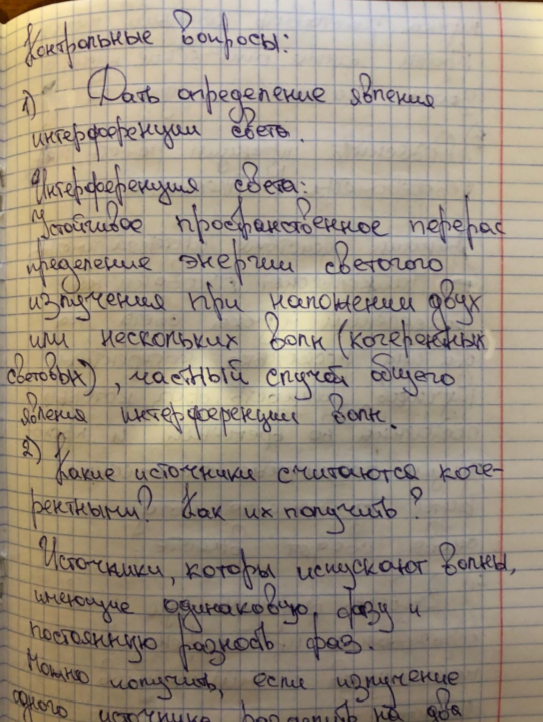 Контрольные вопросы:
1) Дать определение явления
интерференции света.
Интерференция света:
Устойчивое пространственное перерас
пределение энергии светового
излучения при наложении двух
или нескольких волн (когерентных
световых), частный случай общего
явления интерференции волн.
2) Какие источники считаются коге-
рентными? Как их получить?
Источники, которы испускают волны,
имеющие одинаковую фазу и
постоянную разность фаз.
Можно получить, если излучение
одного источника разделить на два